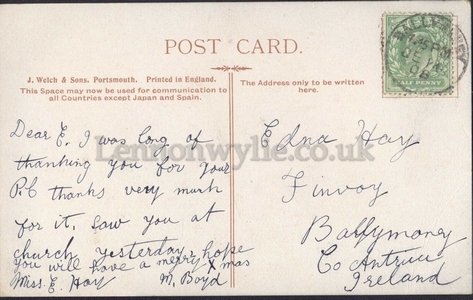 POST CARD.
J. Welch & Sons. Portsmouth. Printed in England.
This Space may now be used for communication to
all Countries except Japan and Spain.
The Address only to be written
here.
HALF PENNY
Dear E. I was long of
thanking you for your
P.C thanks very much
for it. Saw you at
church yesterday
you will have a merry Xmas
hope
Miss. E. Hay M. Boyd
Edna Hay
Finvoy
Ballymoney
Co Antrim
Ireland
Lennonwylie.co.uk